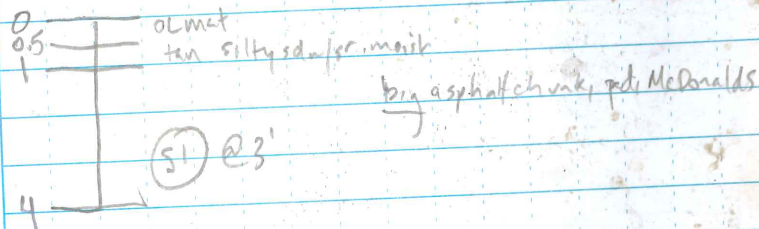 0 OL mat
0.5 tan silty sdw/gr, moist
1
big asphalt chunk, McDonalds
S1 @ 3'
4